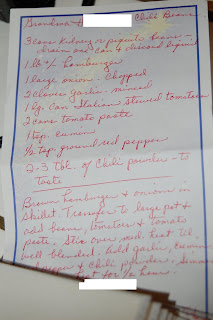 Grandma Chili Beans
3 cans kidney or pinto beans -
drain one can & discard liquid
1 lb of hamburger
1 large onion - chopped
2 cloves garlic - minced
1 lg. can Italian stewed tomatoes
2 cans tomato paste
1 tsp. cumin
1/2 tsp. ground red pepper
2-3 tbl. of Chili powder - to
taste
Brown hamburger & onions in
skillet. Transfer to large pot &
add beans, tomatoes & tomato
paste. Stir over med. heat til
well blended. Add garlic, cumin
red pepper & Chili powder. Simmer
for 1/2 hour.